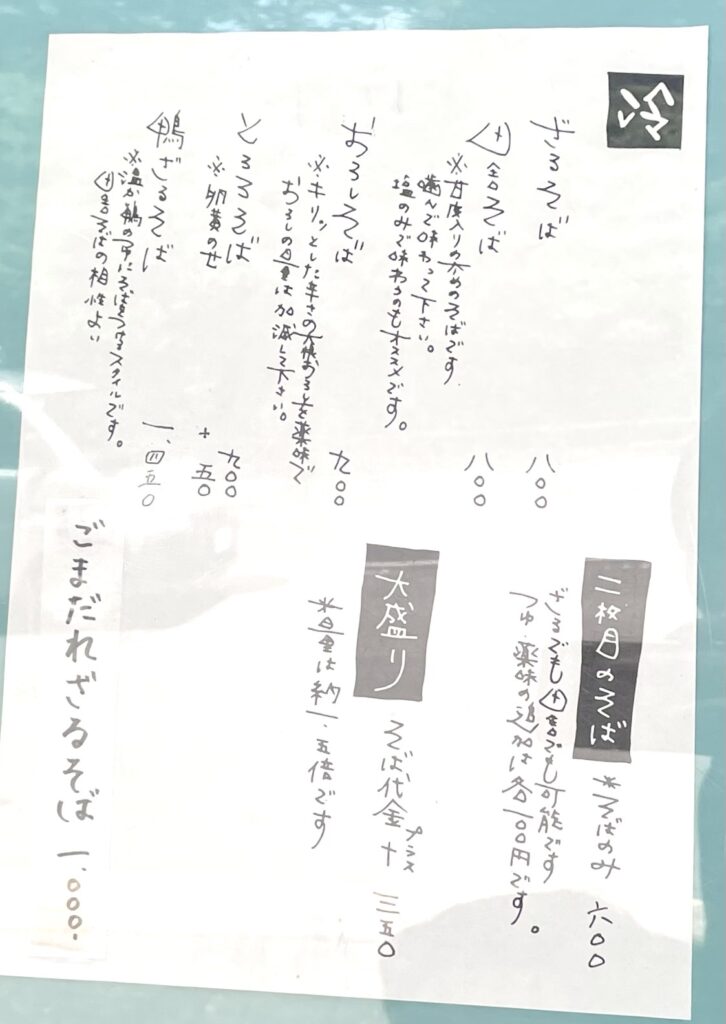 冷
ざるそば 八〇〇
田舎そば 八〇〇
※甘皮入りの太めのそばです
噛んで味わって下さい。
塩のみで味わうのもオススメです。
おろしそば 九〇〇
※キリッとした辛さの大根おろしを薬味で
おろしの量は加減して下さい。
とろろそば 九〇〇
※卵黄のせ +五〇
鴨ざるそば 一、四五〇
※温か鴨のつゆにそばをつけるスタイルです。
田舎そばの相性よい
二枚目のそば ※そばのみ 六〇〇
ざるでも田舎でも可能です
つゆ・薬味の追加は各一〇〇円です。
大盛り そば代金+プラス 三五〇
※量は納一、五倍です
ごまだれざるそば 一、〇〇〇.